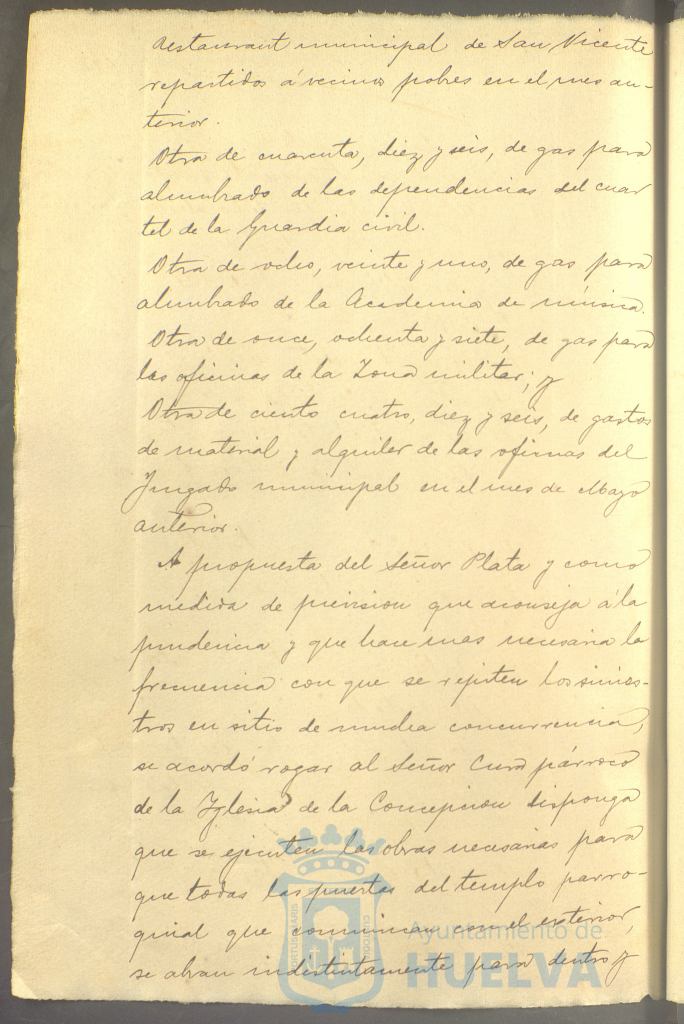 restaurant municipal de San Vicente
repartidos á vecinos pobres en el mes an-
terior.
Otra de cuarenta, diez y seis, de gas para
alumbrado de las dependencias del cuar
tel de la Guardia civil.
Otra de ocho, veinte y uno, de gas para
alumbrado de la Academia de música.
Otra de once, ochenta y siete, de gas para
las oficinas de la Zona militar; y
Otra de ciento cuatro, diez y seis, de gastos
de material y alquiler de las oficinas del
Juzgado municipal en el mes de Mayo
anterior.
A propuesta del Señor Plata y como
medida de prevision que aconseja á la
prudencia y que hace mas necesaria la
frecuencia con que se repiten los sinies-
tros en sitio de mucha concurrencia,
se acordó rogar al Señor Cura párroco
de la Iglesia de la Concepcion disponga
que se ejecuten las obras necesarias para
que todas las puertas del templo parro-
quial que comunican con el exterior,
se abran indistintamente para dentro y
Ayuntamiento de
HUELVA